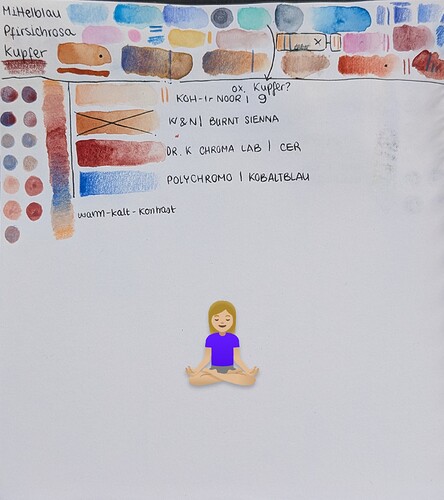 Mittelblau
Pfirsichrosa
Kupfer
ox. Kupfer?
KOH-I-NOOR | 9
W&N | BURNT SIENNA
DR. K CHROMA LAB | CER
POLYCHROMO | KOBALTBLAU
warm-kalt-Kontrast